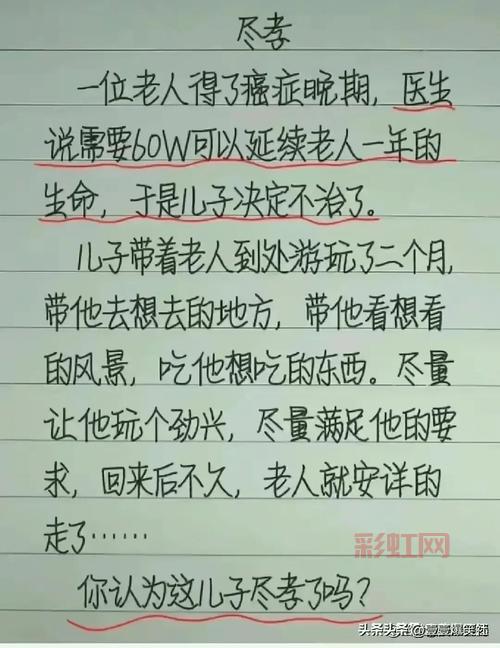 尽孝
一位老人得了癌症晚期,医生
说需要60W可以延续老人一年的
生命,于是儿子决定不治了。
儿子带着老人到处游玩了二个月,
带他去想去的地方,带他看想看
的风景,吃他想吃的东西。尽量
让他玩个劲兴,尽量满足他的要
求,回来后不久,老人就安详的
走了……
彩虹网
你认为这儿子尽孝了吗?
头条头条